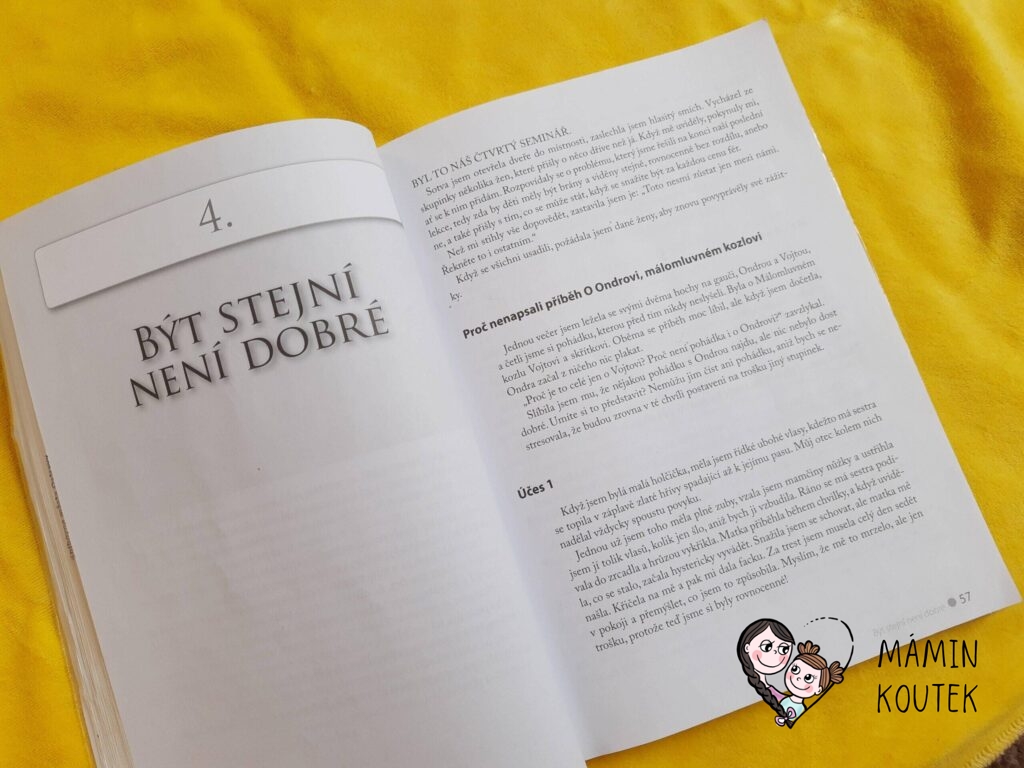 4.
BÝT STEJNÍ
NENÍ DOBRÉ
BYL TO NÁŠ ČTVRTÝ SEMINÁŘ.
Sotva jsem otevřela dveře do místnosti, zaslechla jsem hlasitý smích. Vycházel ze
skupinky několika žen, které přišly o něco dříve než já. Když mě uviděly, pokynuly mi,
ať se k nim přidám. Rozpovídaly se o problému, který jsme řešili na konci naší poslední
lekce, tedy zda by děti měly být brány a viděny stejně, rovnocenně bez rozdílu, anebo
ne, a také přišly s tím, co se může stát, když se snažíte být za každou cenu fér.
Než mi stihly vše dopovědět, zastavila jsem je: „Toto nesmí zůstat jen mezi námi.
Řekněte to i ostatním.“
Když se všichni usadili, požádala jsem dané ženy, aby znovu povyprávěly své zážit-
ky.
Proč nenapsali příběh O Ondrovi, málomluvném kozlovi
Jednou večer jsem ležela se svými dvěma hochy na gauči, Ondrou a Vojtou,
a četli jsme si pohádku, kterou před tím nikdy neslyšeli. Byla o Málomluvném
kozlu Vojtovi a skřítkovi. Oběma se příběh moc líbil, ale když jsem dočetla,
Ondra začal z ničeho nic plakat.
„Proč je to celé jen o Vojtovi? Proč není pohádka i o Ondrovi?“ zavzlykal.
Slíbila jsem mu, že nějakou pohádku s Ondrou najdu, ale nic nebylo dost
dobré. Umíte si to představit? Nemůžu jim číst ani pohádku, aniž bych se ne-
stresovala, že budou zrovna v té chvíli postaveni na trošku jiný stupínek.
Účes 1
Když jsem byla malá holčička, měla jsem řídké ubohé vlasy, kdežto má sestra
se topila v záplavě zlaté hřívy spadající až k jejímu pasu. Můj otec kolem nich
nadělal vždycky spoustu povyku.
Jednou už jsem toho měla plné zuby, vzala jsem mamčiny nůžky a ustřihla
jsem jí tolik vlasů, kolik jen šlo, aniž bych ji vzbudila. Ráno se má sestra podí-
vala do zrcadla a hrůzou vykřikla. Matka přiběhla během chvilky, a když uvidě-
la, co se stalo, začala hystericky vyvádět. Snažila jsem se schovat, ale matka mě
našla. Křičela na mě a pak mi dala facku. Za trest jsem musela celý den sedět
v pokoji a přemýšlet, co jsem to způsobila. Myslím, že mě to mrzelo, ale jen
trošku, protože teď jsme si byly rovnocenné!
Být stejní není dobré ● 57
MÁMIN
KOUTEK